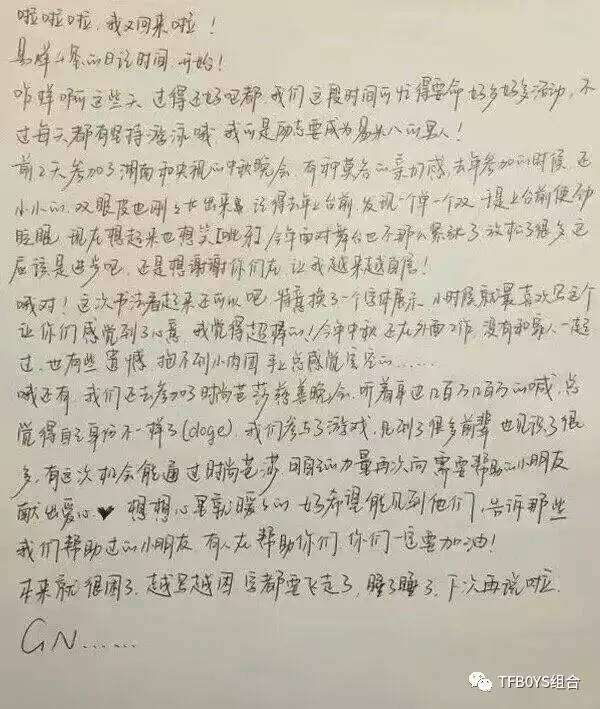 啦啦啦，我又回来啦！
易烊千玺的日记时间，开始！
咋样啊 这些天 过得还好吧都 我们这段时间可忙得要命 好多好多活动，不
过每天都有坚持游泳哦，我可是励志要成为易米八的男人！
前2天参加了湖南和央视的中秋晚会，有种莫名的亲切感，去年参加的时候，还
小小的，双眼皮也刚长出来，记得去年上台前，发现一个单一个双 于是上台前使劲
眨眼，现在想起来也想笑[呲牙]今年面对舞台也不那么紧张了 放松了很多 这
应该是进步吧，还是想谢谢你们在，让我越来越自信！
哦对！这次书法看起来还可以吧，特意换了一个字体展示，小时候就最喜欢写这个
让你们感觉到了心意，我觉得超棒的！今年中秋 还在外面工作，没有和家人一起
过，也有些遗憾 抱不到小肉团 手上总感觉空空的……
哦还有，我们还去参加了时尚芭莎慈善晚会，听着身边几百万几百万的喊，总
觉得自己身份不一样了(doge)，我们参与了游戏，见到了很多前辈 也见识了很
多，有这次机会能通过时尚芭莎，明星的力量再次向 需要帮助的小朋友
献出爱心❤ 想想心里就暖暖的 好希望能见到他们，告诉那些
我们帮助过的小朋友 有人在帮助你们，你们一定要加油！
本来就很困了，越写越困 字都要飞走了，睡了睡了，下次再说啦.
GN……
TFBOYS组合